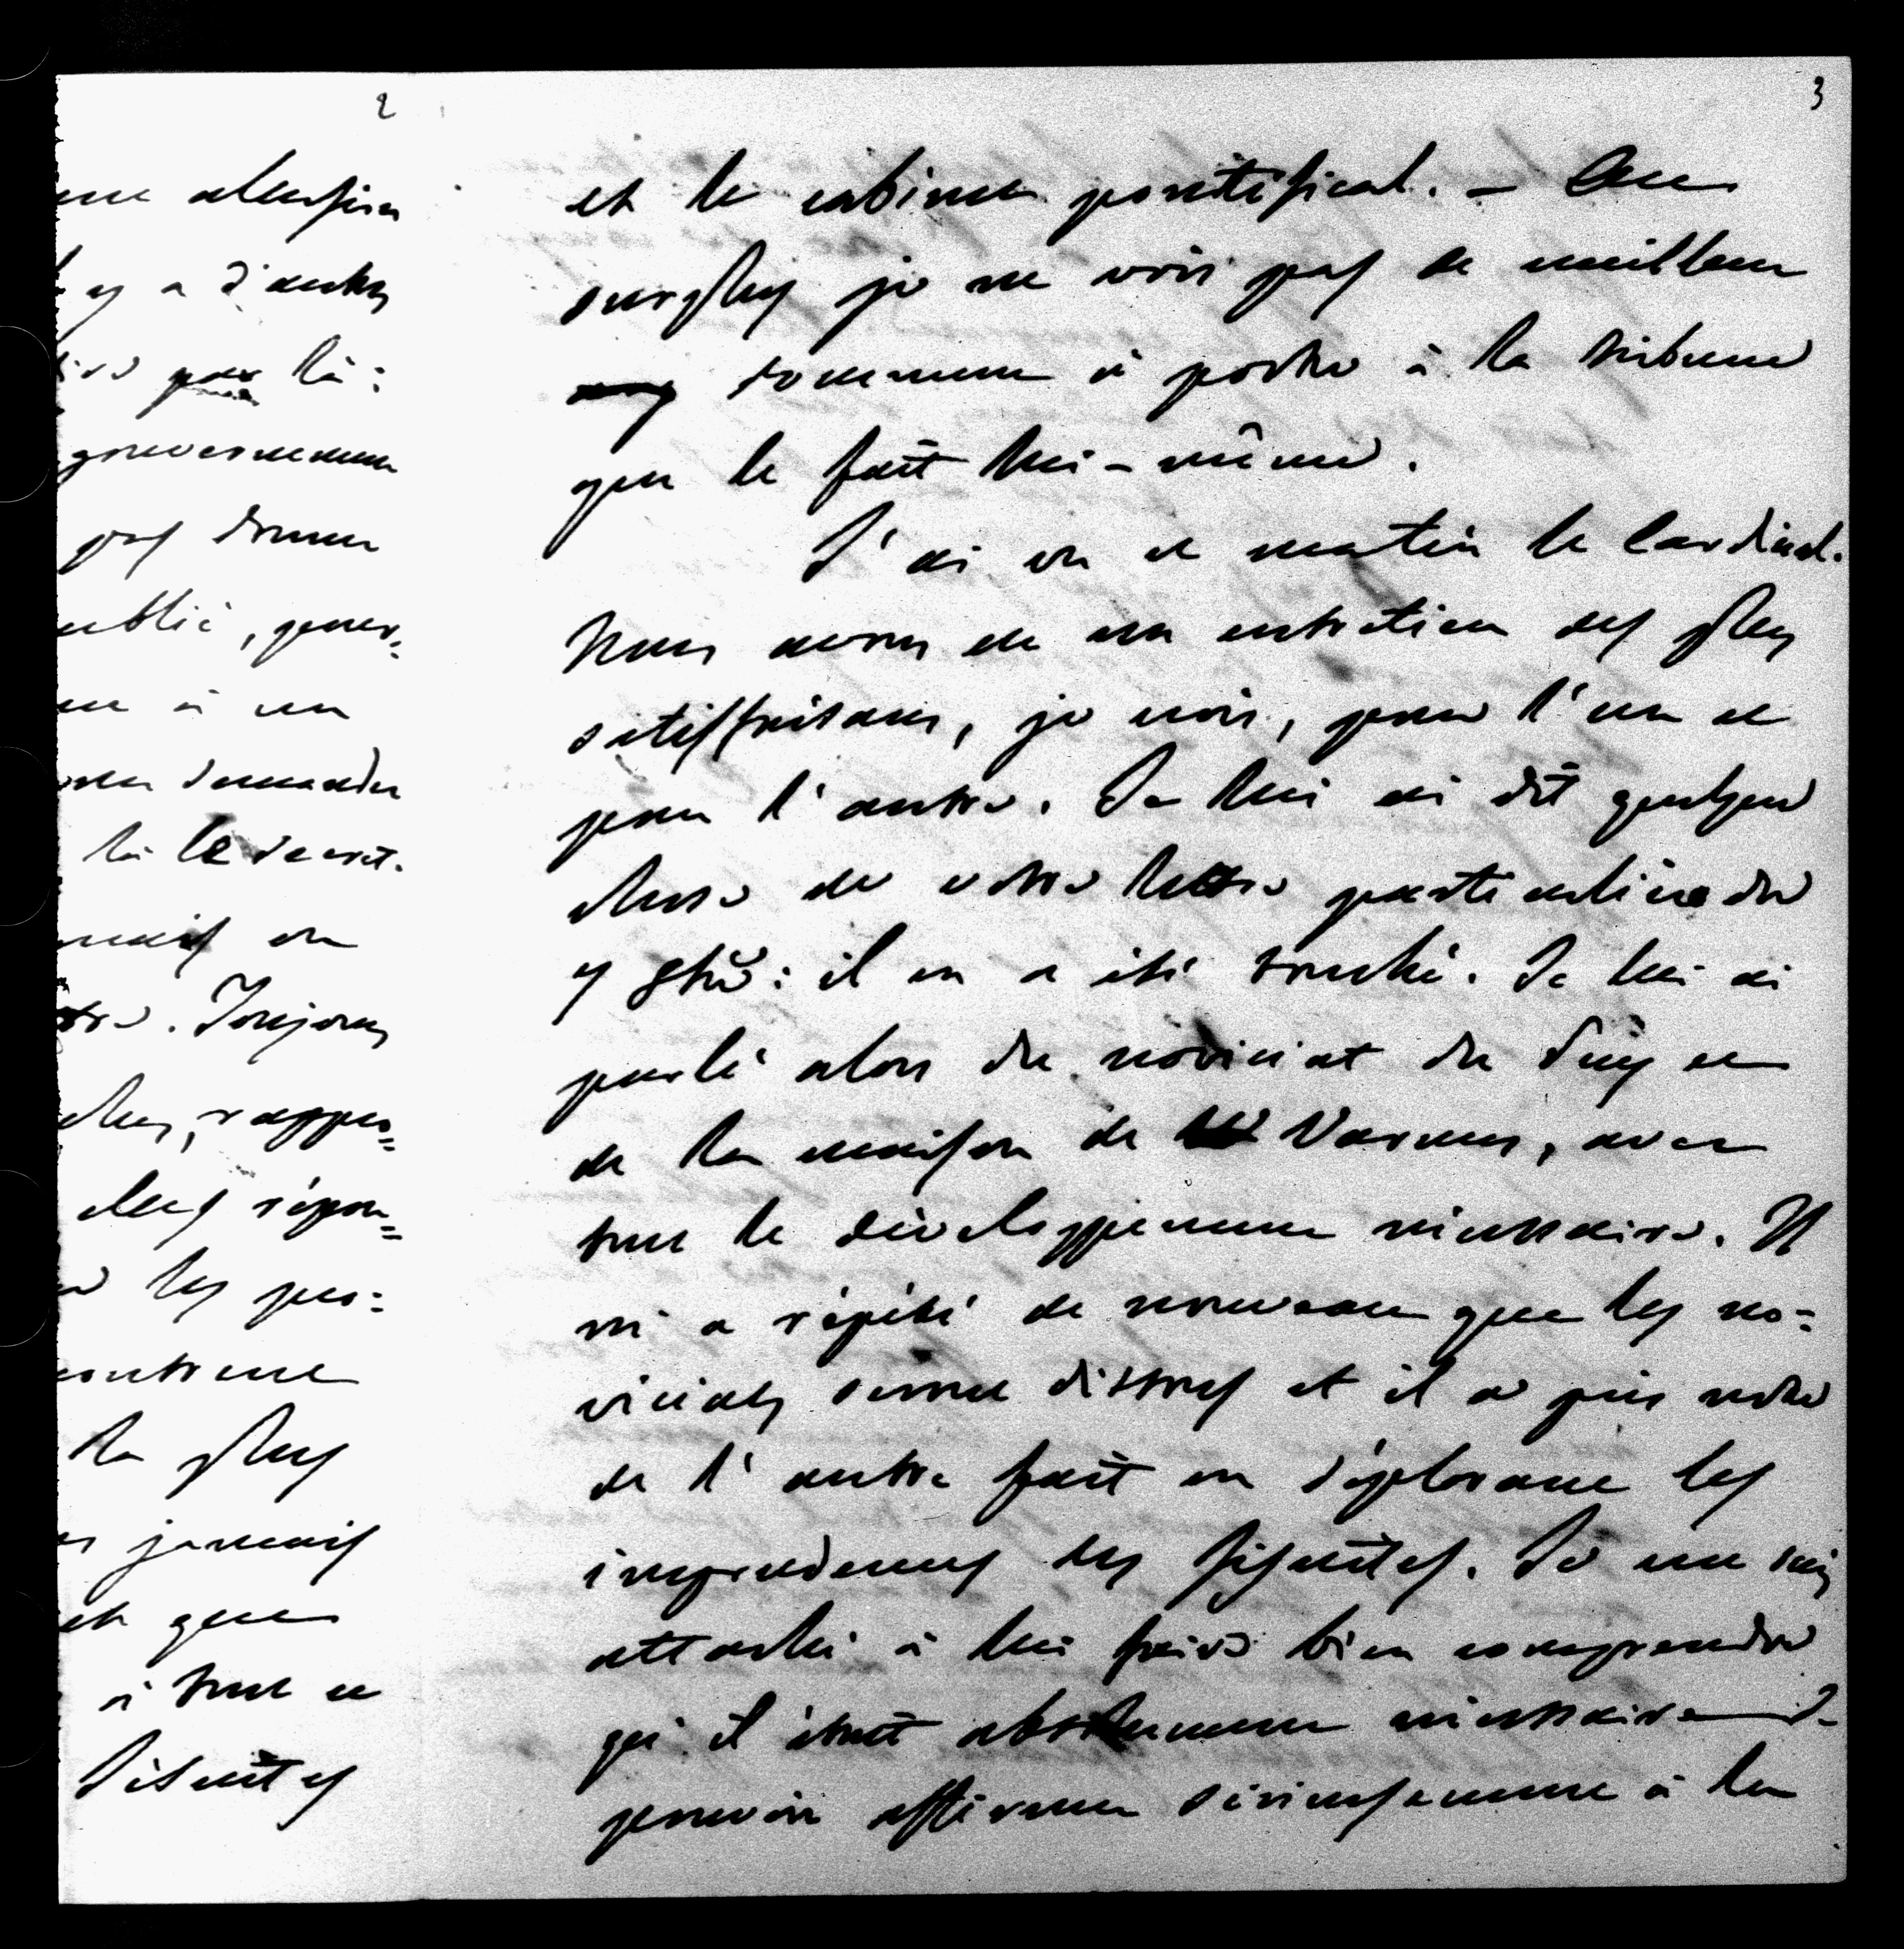 2
une allusion
y a d'autres
par là :
gouvernement
pas donner
publié, pour=
à un
demander
là le décret.
mais on
Toujours
plus, rappro=
plus répon=
les pro=
contenue
la plus
jamais
et que
à tout ce
Jésuites
3
et le cabinet pontifical. — Au
surplus je ne vois pas de meilleur
document à porter à la tribune
que le fait lui-même.
J'ai vu ce matin le Cardinal.
Nous avons eu un entretien des plus
satisfaisans, je crois, pour l'un et
pour l'autre. Je lui ai dit quelque
chose de votre lettre particulière du
9 8bre : il en a été touché. Je lui ai
parlé alors du noviciat du Puy et
de la maison de Vannes, avec
tout le développement nécessaire. Il
m'a répété de nouveau que les no=
viciats seront dissous et il a pris note
de l'autre fait en déplorant les
imprudences des Jésuites. Je me suis
attaché à lui faire bien comprendre
qu'il était absolument nécessaire de
pouvoir affirmer sérieusement à la